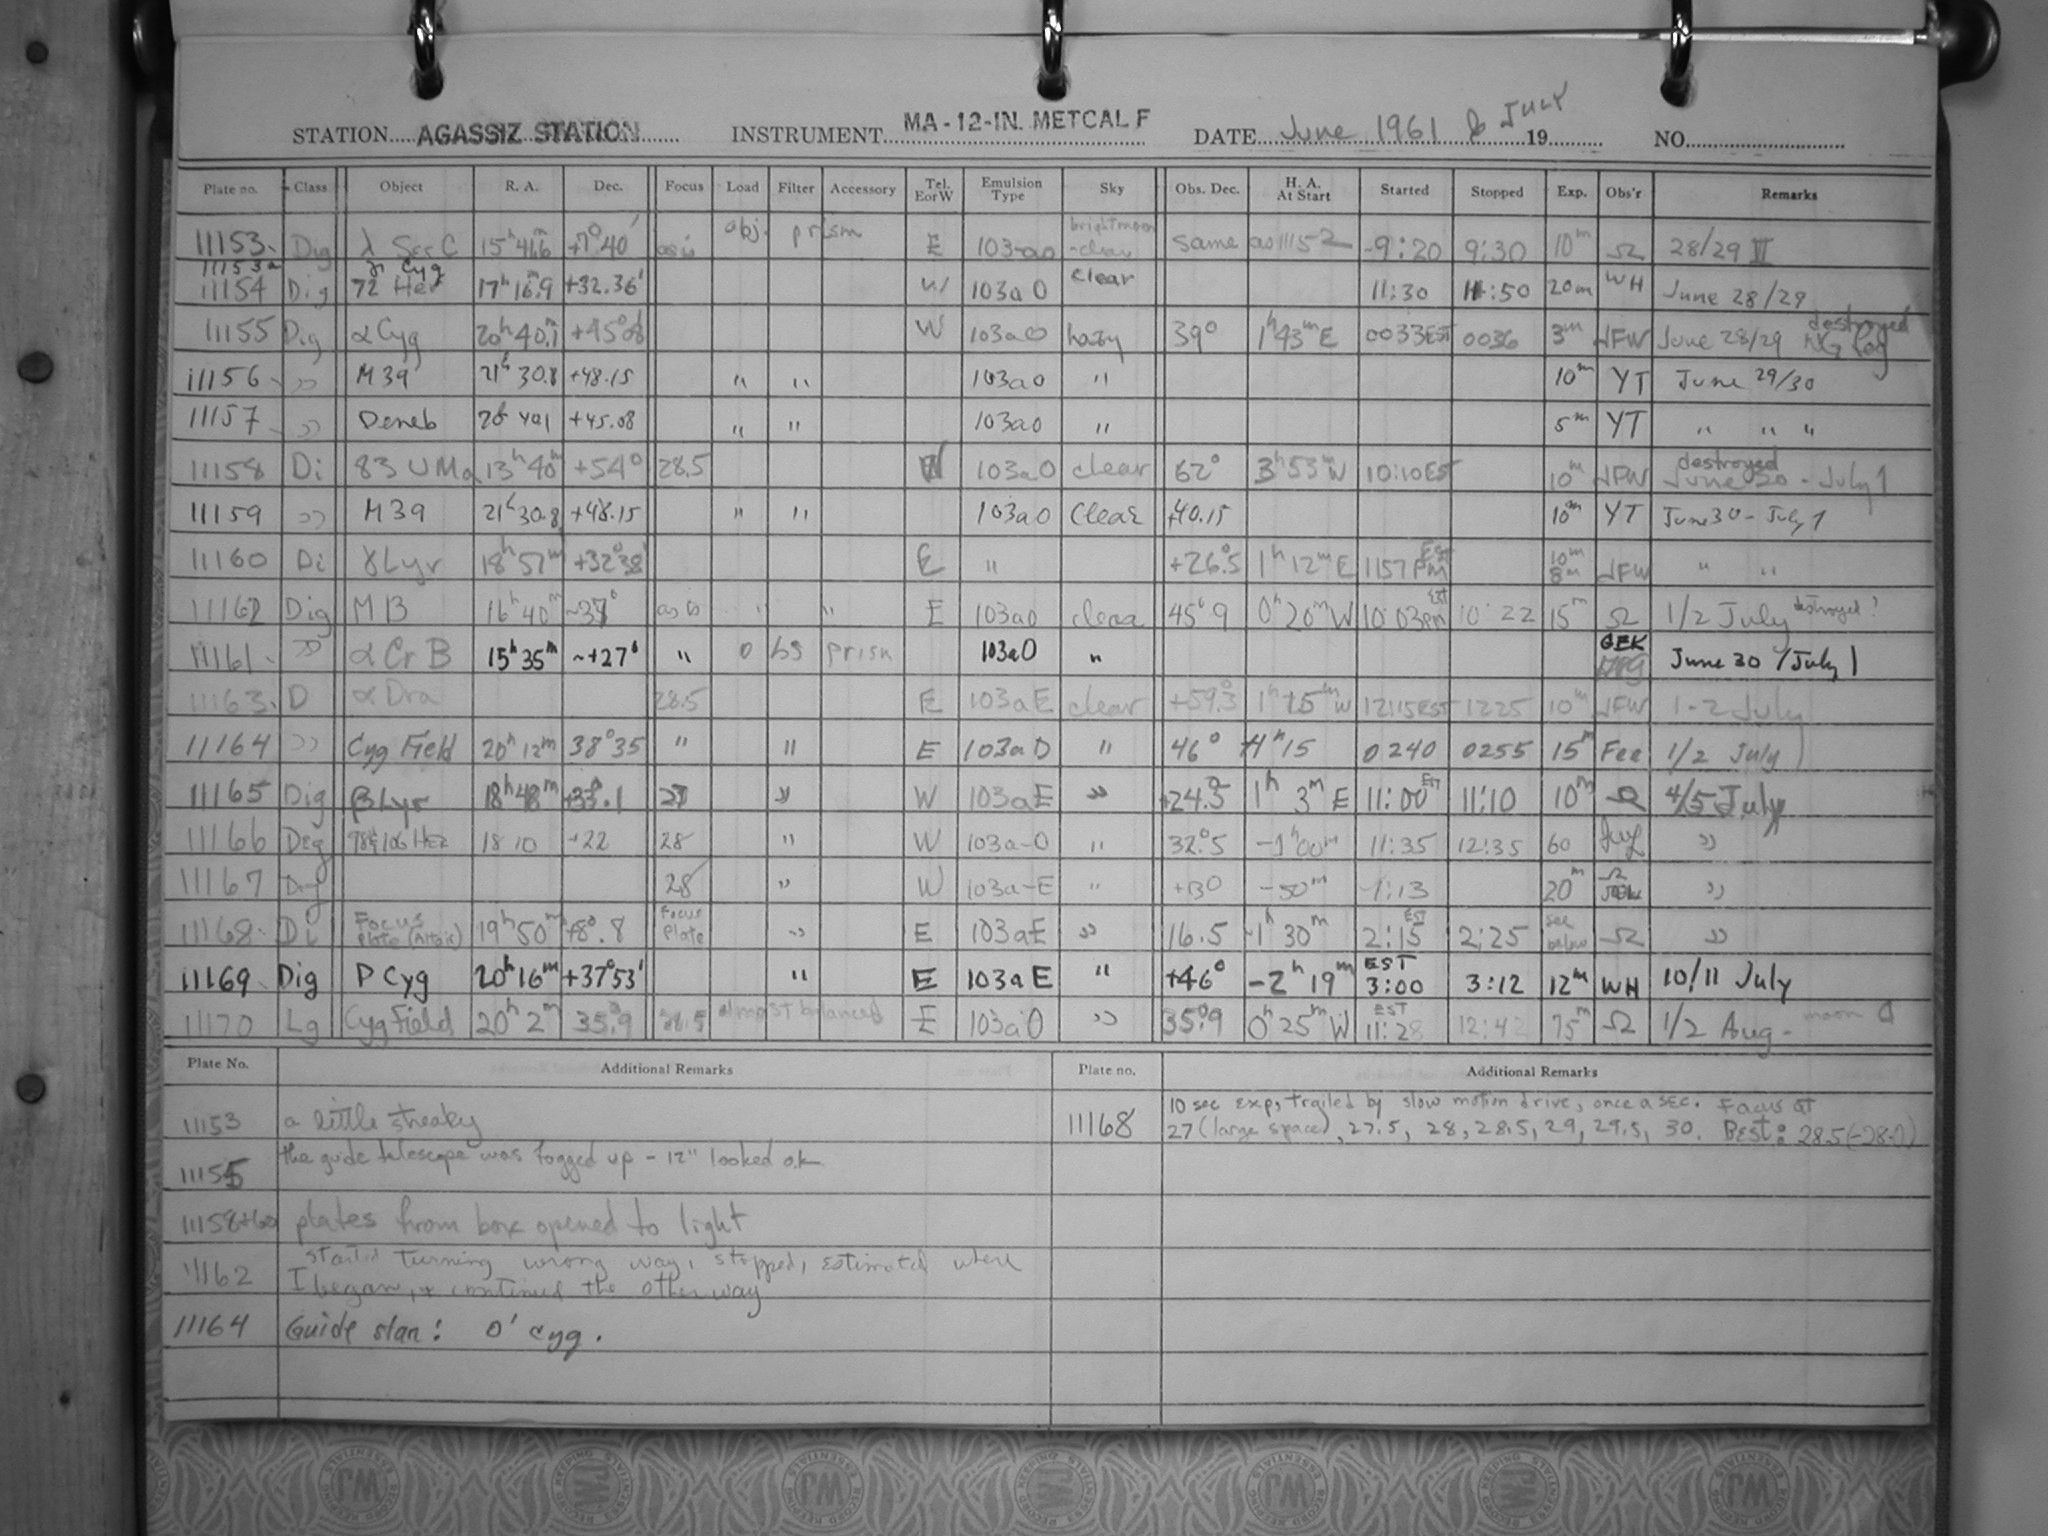 STATION AGASSIZ STATION INSTRUMENT MA-12-IN. METCALF DATE June 1961 & JULY 19 NO.
Plate no. Class Object R. A. Dec. Focus Load Filter Accessory Tel. E or W Emulsion Type Sky Obs. Dec. H. A. At Start Started Stopped Exp. Obs'r Remarks
11153 Dig λ Ser C 15h 41.6m +7° 40' as is obj. prism E 103-ao bright moon - clear same as 11152 9:20 9:30 10m Ω 28/29 II
11153a γ Cyg
11154 Dig 72 Her 17h 16.m9 +32.36' W 103aO clear 11:30 11:50 20m WH June 28/29
11155 Dig α Cyg 20h 40.1m +45°08' W 103aO hazy 39° 1h 43m E 0033EST 0036 3m JFW June 28/29 destroyed NG fog
11156 " M39 21h 30.8 +48.15 " " 103a0 " 10m YT June 29/30
11157 " Deneb 20h 40.1 +45.08 " " 103a0 " 5m YT " " "
11158 Di 83 UMa 13h 40m +54° 28.5 W 103aO clear 62° 3h 53m W 10:10EST 10m JFW destroyed June 30 - July 1
11159 " M39 21h 30.8 +48.15 " " 103aO Clear +40.15 10m YT June 30 - July 1
11160 Di γ Lyr 18h 57m +32°38' E " +26.°5 1h 12m E 1157 PM EST 10m 8m JFW " "
11162 Dig M13 16h 40m ~37° as is " " E 103aO clear 45°9 0h 20m W 10:03PM EST 10:22 15m Ω 1/2 July destroyed?
11161 " α Cr B 15h 35m ~+27° " Obs prism 103aO " GEK June 30 / July 1
11163 D α Dra 28.5 E 103aE clear +59.°3 1h 15m W 1215EST 1225 10m JFW 1-2 July
11164 " Cyg Field 20h 12m 38°35 " " E 103aO " 46° 1h 15 0240 0255 15m Fee 1/2 July
11165 Dig β Lyr 18h 48m +33.°1 28 " W 103aE " +24.°5 1h 3m E 11:00 EST 11:10 10m Ω 4/5 July
11166 Dig 98&106 Her 18 10 +22 28 " W 103a-O " 32.°5 -1h 00m 11:35 12:35 60 "
11167 Dig 28 " W 103a-E " +130 -50m 1:13 20m Ω "
11168 Di Focus plate (Altair) 19h 50m +8°.8 Focus plate " E 103aE " 16.5 -1h 30m 2:15 EST 2:25 see below Ω "
11169 Dig P Cyg 20h 16m +37°53' " E 103aE " +46° -2h 19m EST 3:00 3:12 12m WH 10/11 July
11170 Lg Cyg Field 20h 2m 35.°9 28.5 almost balanced E 103aO " 35.°9 0h 25m W EST 11:28 12:42 75m Ω 1/2 Aug - moon
Plate No. Additional Remarks Plate no. Additional Remarks
11153 a little streaky
11168 10 sec exp, trailed by slow motion drive, once a sec. Focus at
27 (large space), 27.5, 28, 28.5, 29, 29.5, 30. Best: 28.5
11155 the guide telescope was fogged up - 12" looked ok
11158+60 plates from box opened to light
11162 started turning wrong way, stopped, estimated where
I began, + continued the other way
11164 Guide star: O' Cyg.